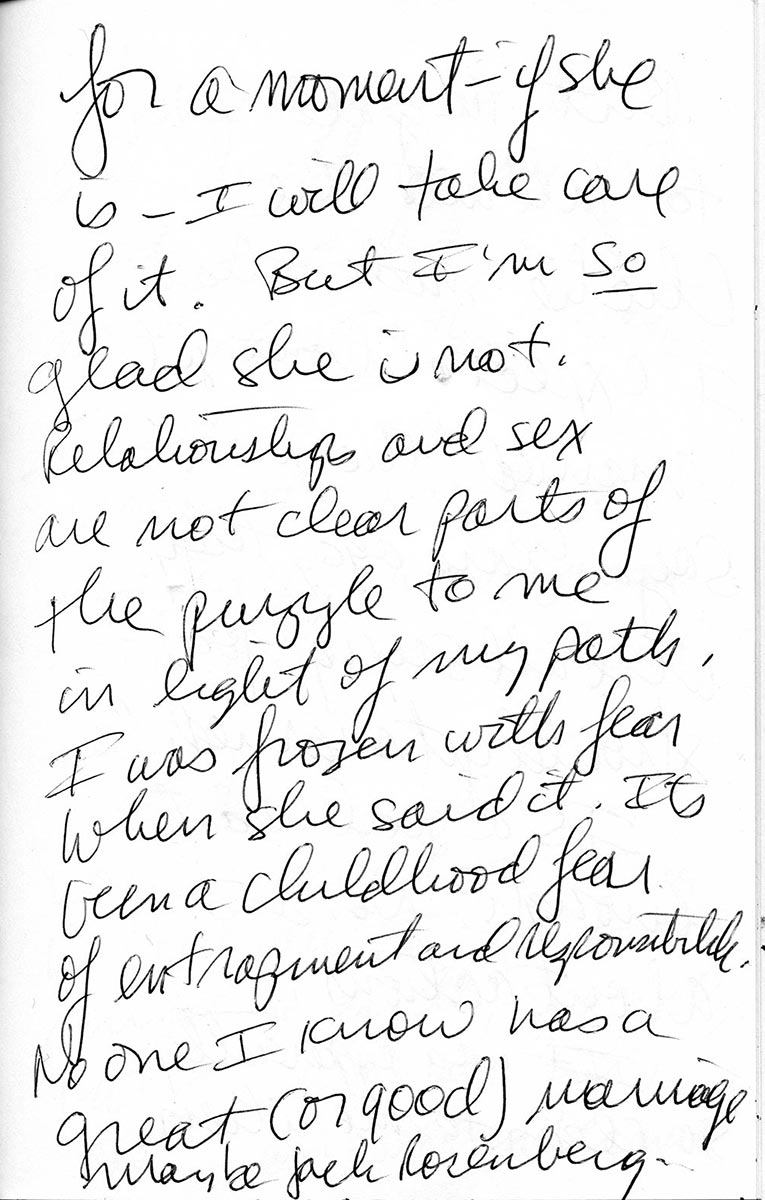 for a moment – if she
is – I will take care
of it. But I'm so
glad she is not.
Relationships and sex
are not clear parts of
the puzzle to me
in light of my path.
I was frozen with fear
when she said it. Its
been a childhood fear
of entrapment and responsibility.
No one I know has a
great (or good) marriage
maybe Jack Rosenberg.